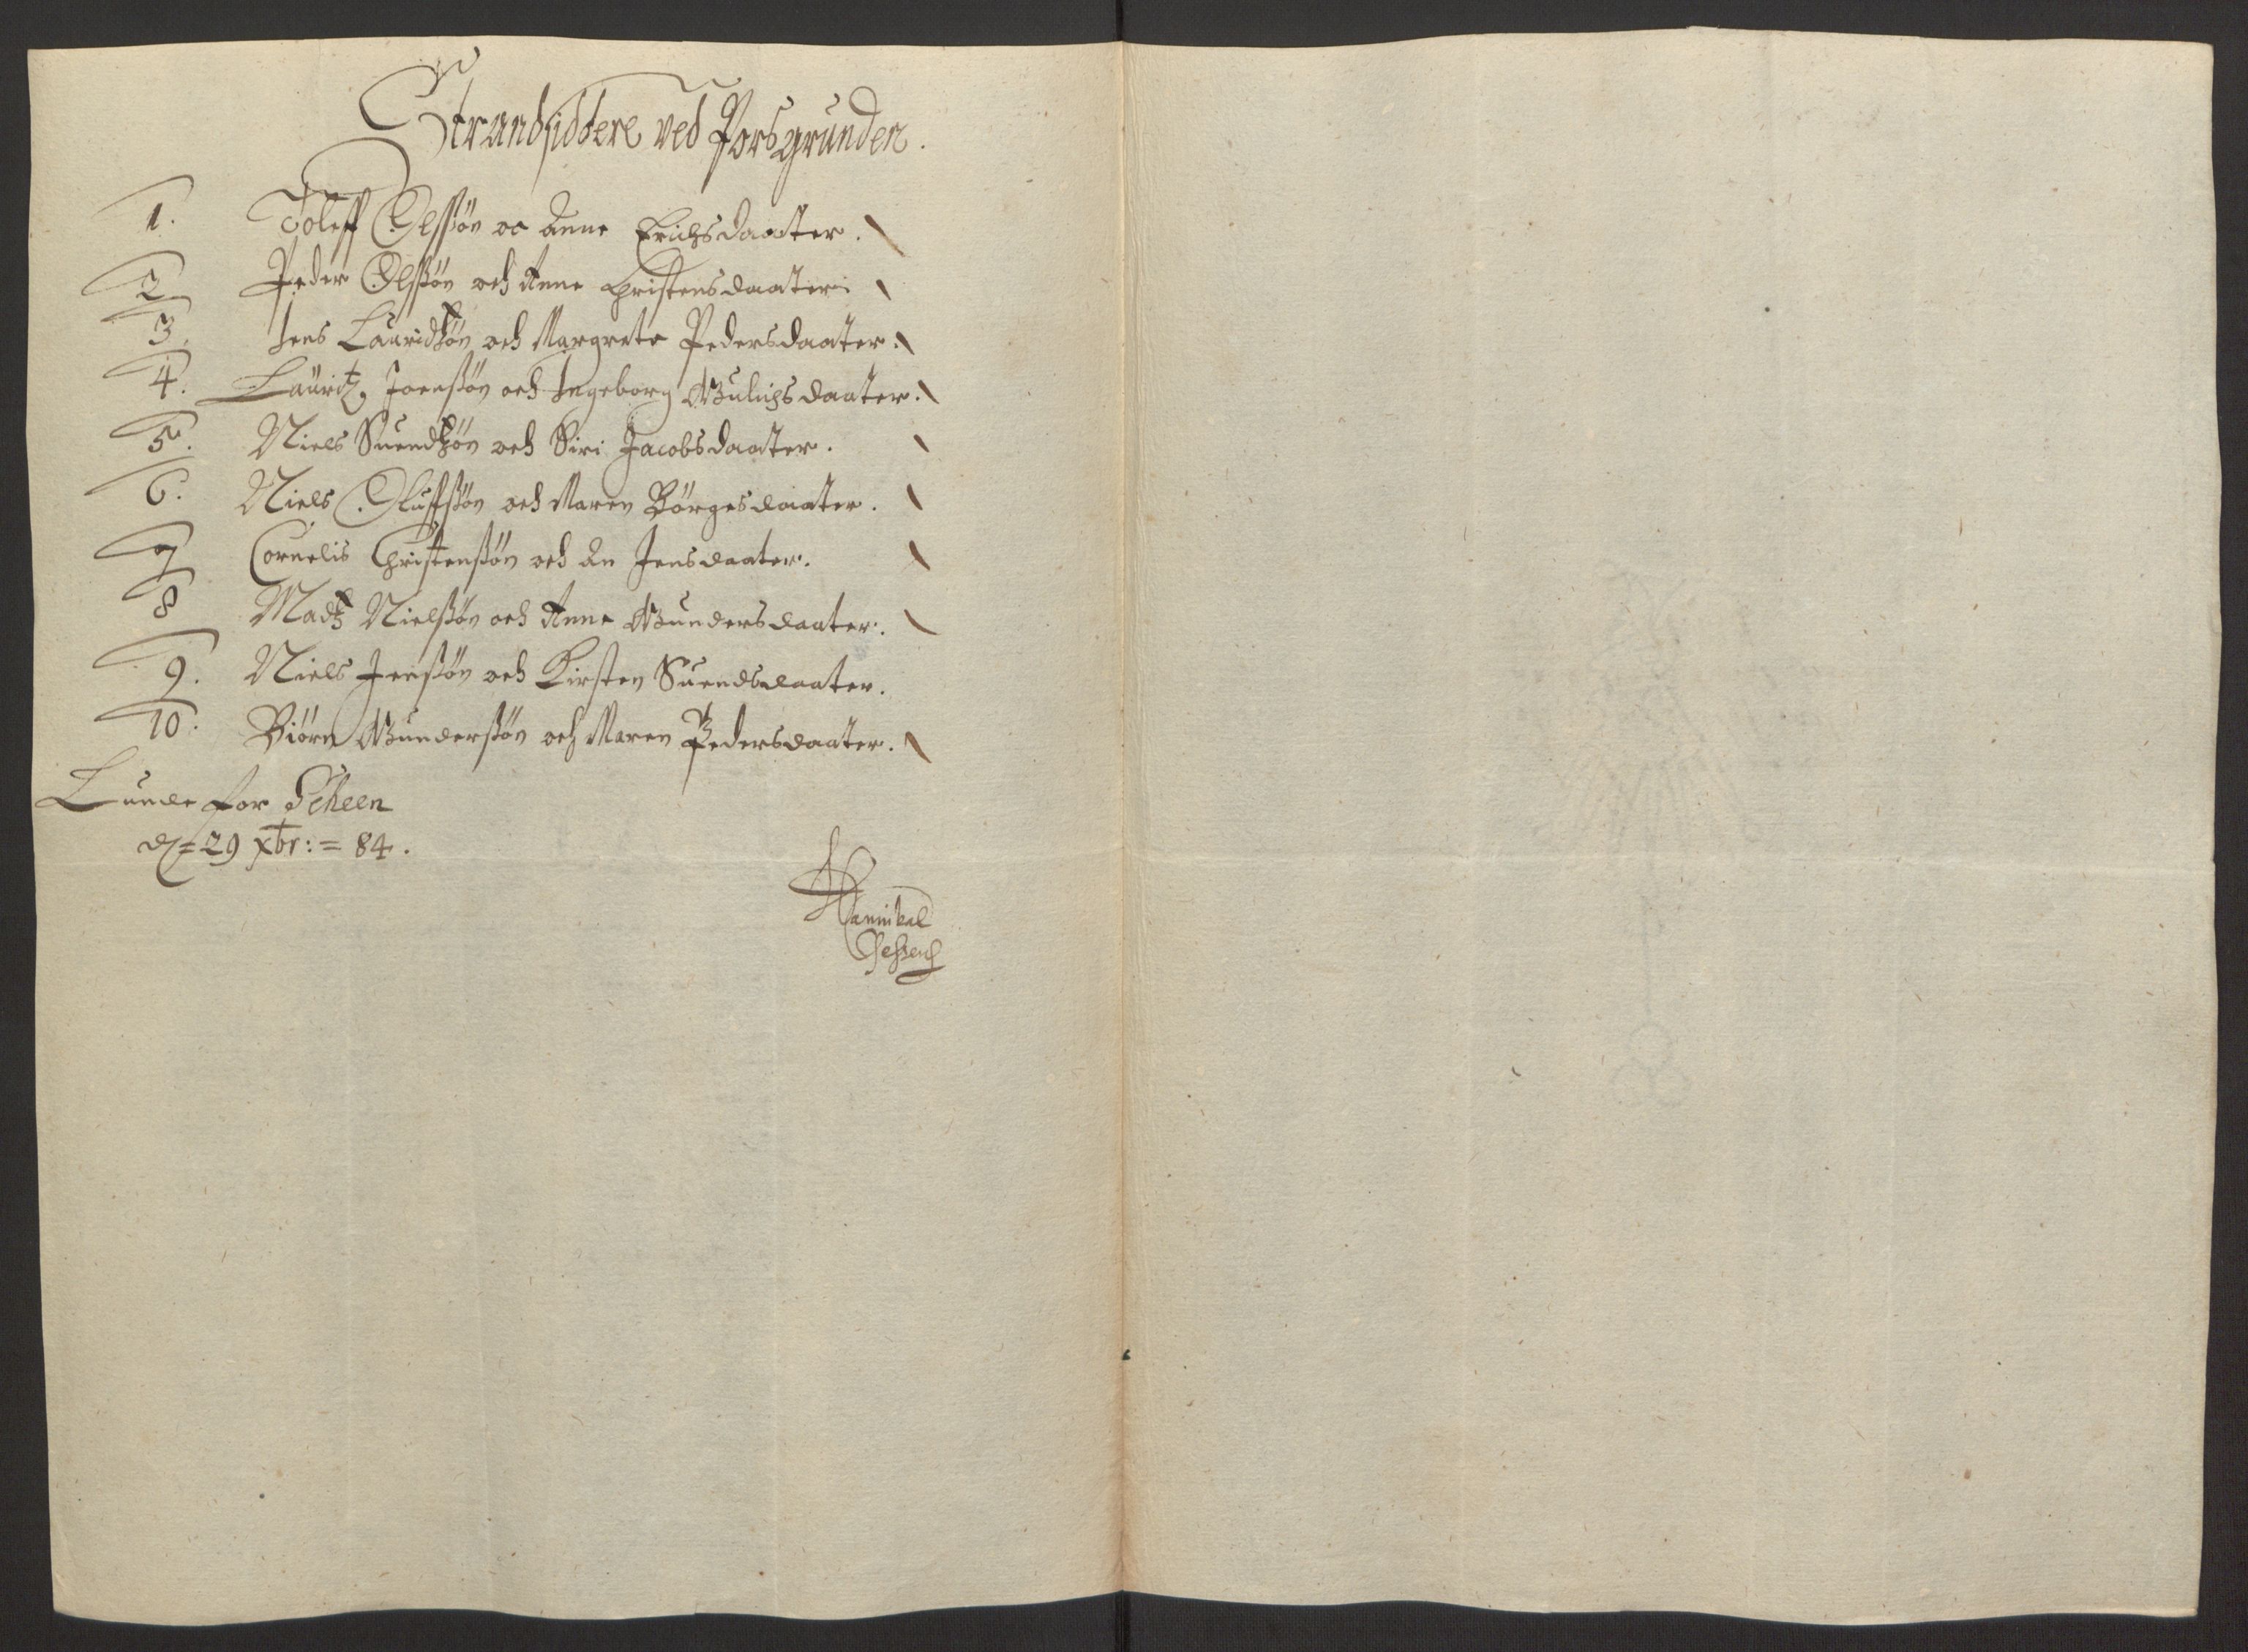 Strandsiddere ved Porsgrunden.
1. Toleff Olssøn oc Anne Erichsdaatter.
2 Peder Olssøn och Anne Christensdaatter
3. Jens Lauridtzøn och Margrete Pedersdaatter.
4. Lauritz Joenssøn och Ingeborg Gulichsdaater.
5. Niels Suendtzøn och Siri Jacobsdaatter.
6. Niels Oluffssøn och Maren Børgesdaater.
7 Cornelis Christenssøn och An Jensdaater.
8 Madtz Nielssøn och Anne Gundersdaater.
9. Niels Jenssøn och Kirsten Suendsdaater.
10. Biörn Gunderssøn och Maren Pedersdaater.
Lunde for Scheen
d = 29 xbr: = 84.
Hannibal